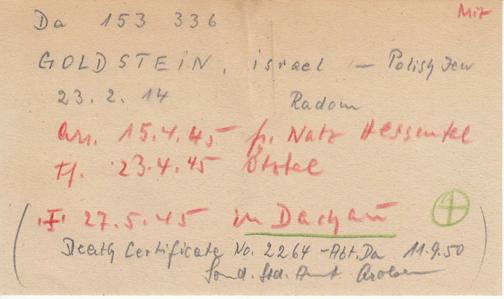 Mit
Da 153 336
GOLDSTEIN, israel - Polish Jew
23.2.14 Radom
arr. 15.4.45 fr. Natz
Tf. 23.4.45 Ötztal
27.5.45 in Dachau
(Death Certificate No. 2264 - Abt. Da 11.9.50
Sond. Std. Amt Arolsen)